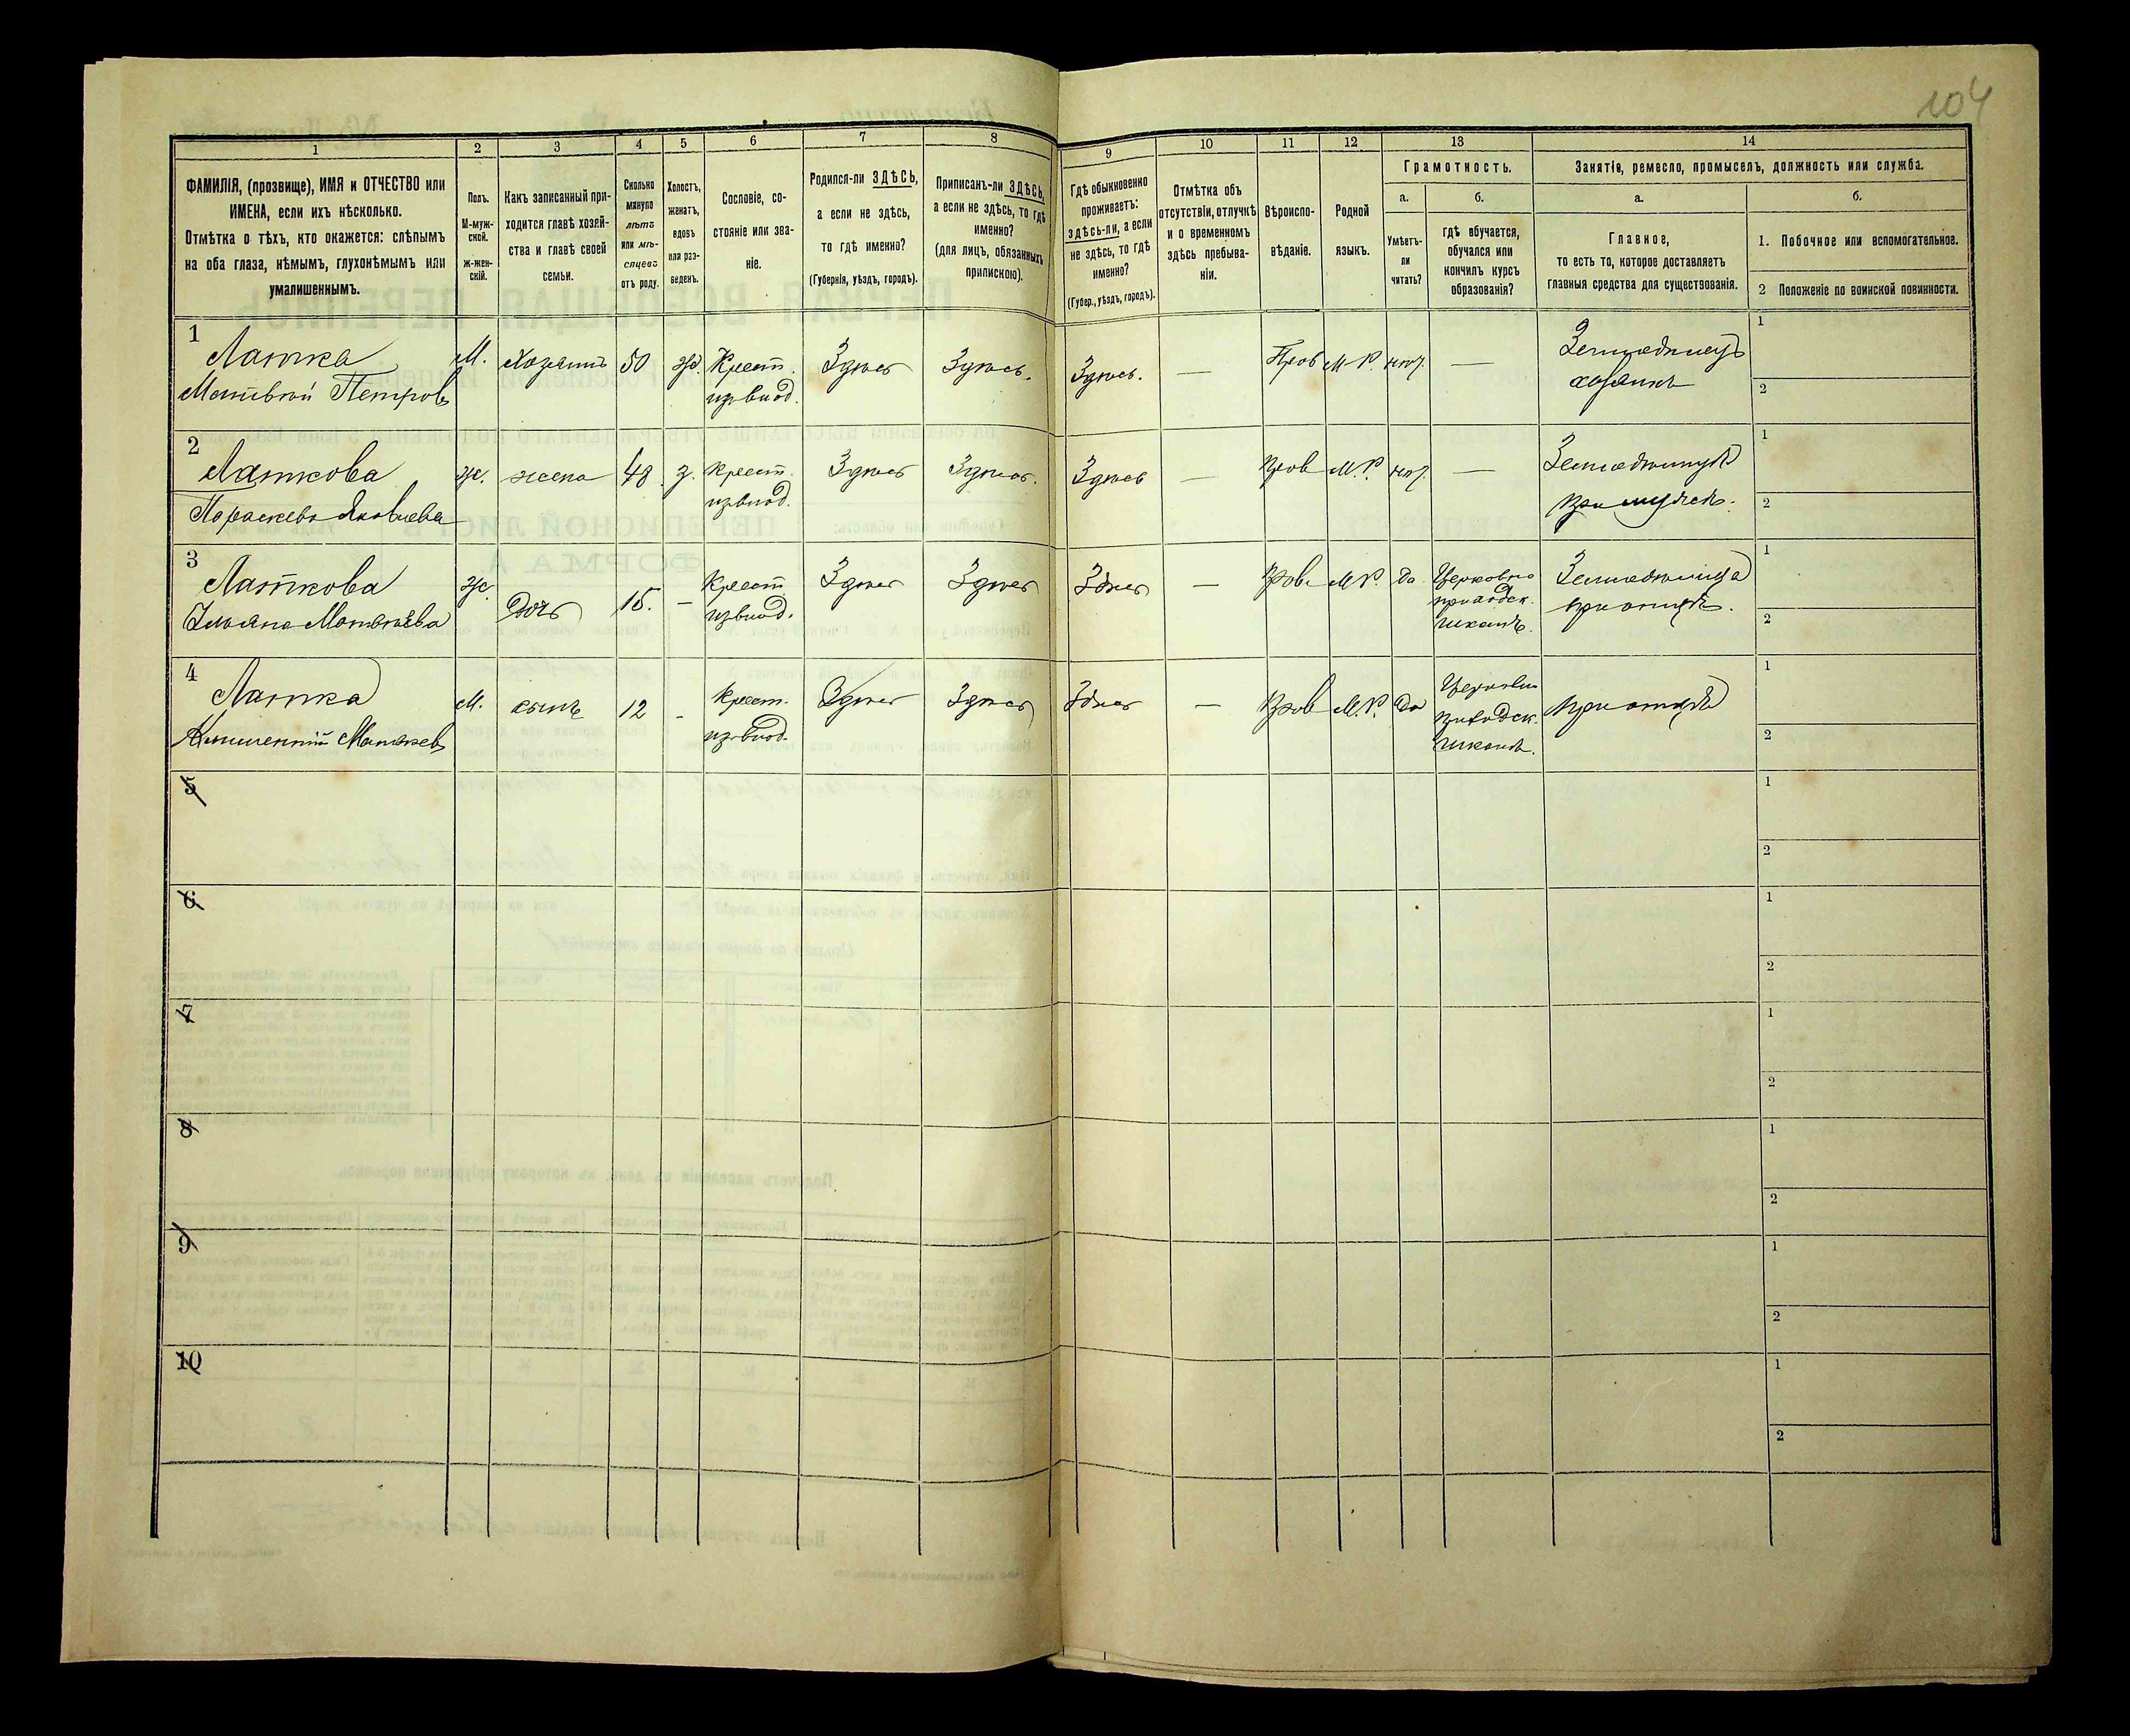 104
1
2
3
4
5
6
7
8
9
10
11
12
13
14
ФАМИЛІЯ, (прозвище), ИМЯ и ОТЧЕСТВО или
ИМЕНА, если ихъ нѣсколько.
Отмѣтка о тѣхъ, кто окажется: слѣпымъ
на оба глаза, нѣмымъ, глухонѣмымъ или
умалишеннымъ.
Полъ.
М-муж-
ской.
Ж-жен-
скій.
Какъ записанный при-
ходится главѣ хозяй-
ства и главѣ своей
семьи.
Сколько
минуло
лѣтъ
или мѣ-
сяцевъ
отъ роду.
Холостъ,
женатъ,
вдовъ
или раз-
веденъ.
Сословіе, со-
стояніе или зва-
ніе.
Родился-ли ЗДѢСЬ,
а если не здѣсь,
то гдѣ именно?
(Губернія, уѣздъ, городъ).
Приписанъ-ли ЗДѢСЬ,
а если не здѣсь, то гдѣ
именно?
(для лицъ, обязанныхъ
припискою).
Гдѣ обыкновенно
проживаетъ:
здѣсь-ли, а если
не здѣсь, то гдѣ
именно?
(Губер., уѣздъ, городъ).
Отмѣтка объ
отсутствіи, отлучкѣ
и о временномъ
здѣсь пребыва-
ніи.
Вѣроиспо-
вѣданіе.
Родной
языкъ.
Грамотность.
а.
Умѣетъ-
ли
читать?
б.
гдѣ обучается,
обучался или
кончилъ курсъ
образованія?
Занятіе, ремесло, промыселъ, должность или служба.
а.
Главное,
то есть то, которое доставляетъ
главныя средства для существованія.
б.
1. Побочное или вспомогательное.
2 Положеніе по воинской повинности.
1
Латка
Матвѣй Петровъ
М. Хозяинъ 50 ж. Крест.
из влад.
Здѣсь Здѣсь. Здѣсь. — Прав М-Р. нѣт. —
Земледѣлецъ
хозяинъ
1
2
2
Латкова
Параскева Яковлева
ж. жена 48 з. Крест.
из влад.
Здѣсь Здѣсь. Здѣсь — прав М.Р. нѣт. —
Земледѣлица
при мужѣ.
1
2
3
Латкова
Матвѣева
ж. Дочь 15. — Крест
из влад.
Здѣсь Здѣсь Здѣсь — прав. М.Р. Да
Церковно
приходск.
школѣ.
Земледѣлица
при отцѣ.
1
2
4
Латка
Матвѣев
М. сынъ 12 - Крест.
из влад.
Здѣсь Здѣсь Здѣсь — прав М.Р. Да
Церковно
приходск.
школѣ.
при отцѣ
1
2
5
1
2
6
1
2
7
1
2
8
1
2
9
1
2
10
1
2